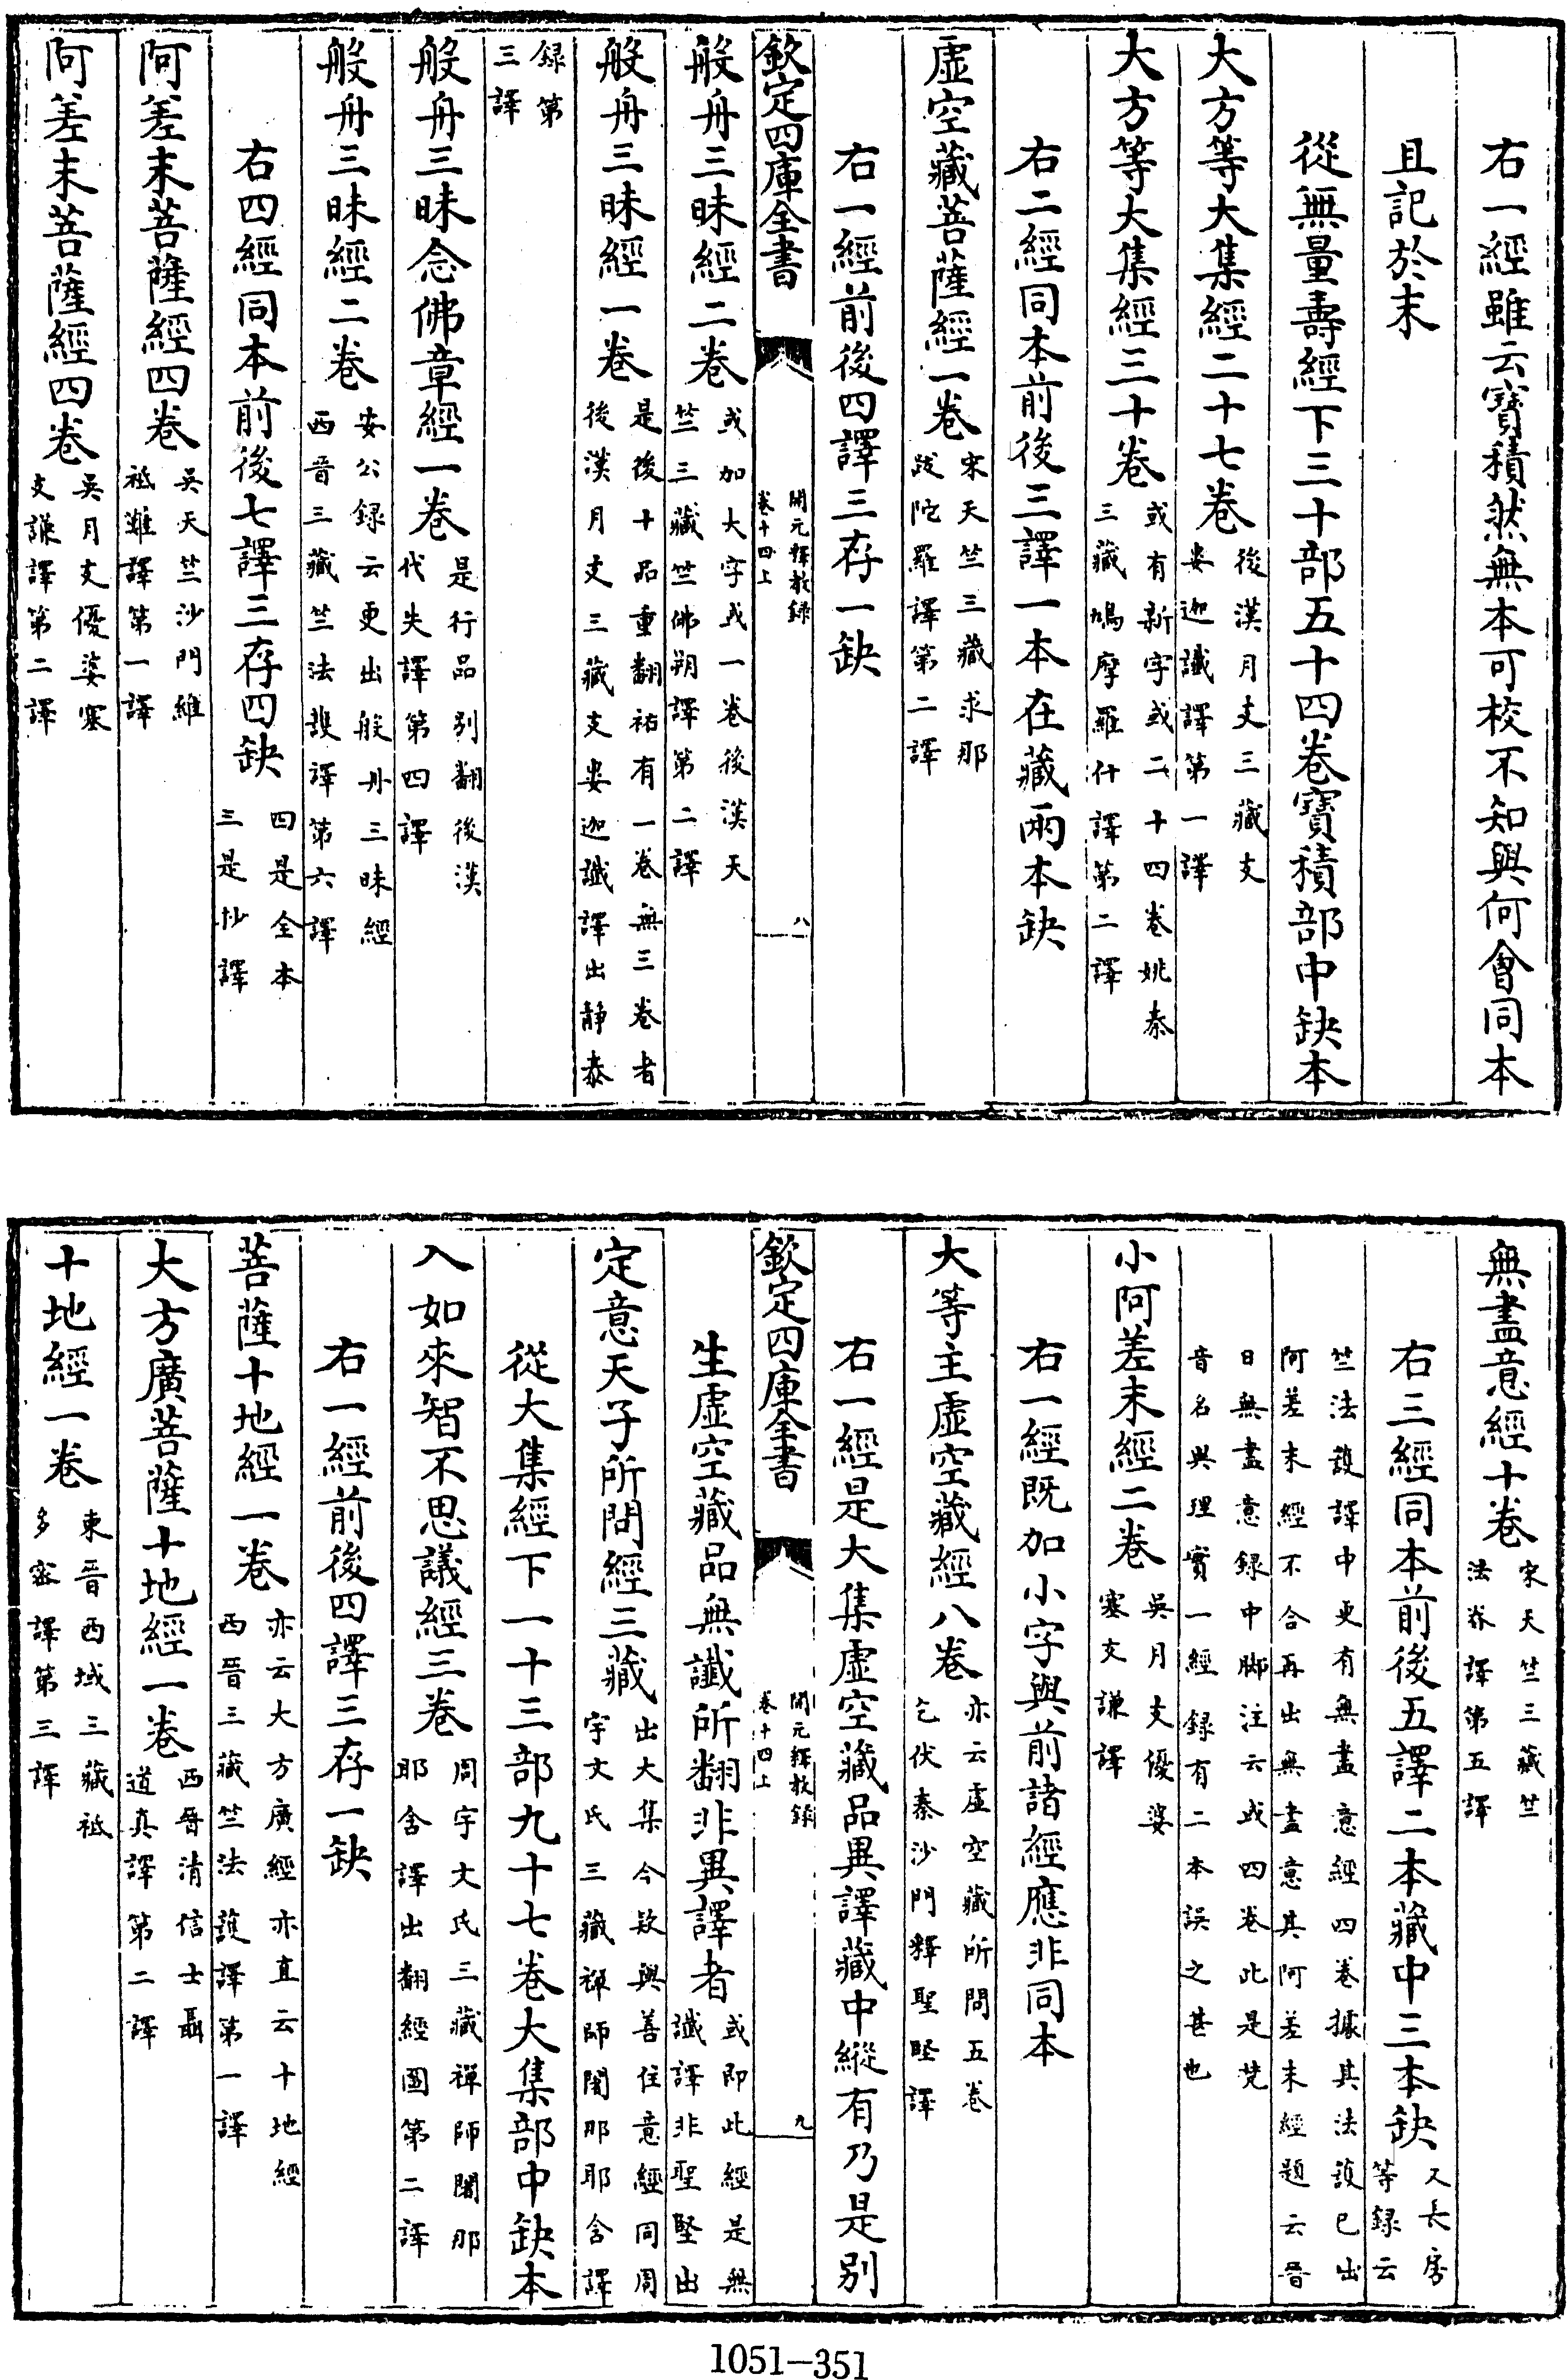 右一經雖云寳積然無本可校不知與何會同本
且記於末
從無量壽經下三十部五十四卷寳積部中缺本
大方等大集經二十七卷後漢月支三藏支婁迦讖譯第一譯
大方等大集經三十卷或有新字或二十四卷姚秦三藏鳩摩羅什譯第二譯
右二經同本前後三譯一本在藏兩本缺
虚空藏菩薩經一卷宋天竺三藏求那跋陀羅譯第二譯
右一經前後四譯三存一缺
欽定四庫全書 開元釋教録卷十四上 八
般舟三昧經二卷或加大字或一卷後漢天竺三藏竺佛朔譯第二譯
般舟三昧經一卷是後十品重翻祐有一卷無三卷者後漢月支三藏支婁迦讖譯出靜泰
録第三譯
般舟三昧念佛章經一卷是行品别翻後漢代失譯第四譯
般舟三昧經二卷安公録云更出般舟三昧經西晉三藏竺法護譯第六譯
右四經同本前後七譯三存四缺四是全本三是抄譯
阿差末菩薩經四卷吳天竺沙門維祗難譯第一譯
阿差末菩薩經四卷吳月支優婆塞支謙譯第二譯
無盡意經十卷宋天竺三藏竺法眷譯第五譯
右三經同本前後五譯二本藏中三本缺又長房等録云
竺法護譯中更有無盡意經四卷據其法護已出阿差末經不合再出無盡意其阿差末經題云晉
曰無盡意録中脚注云或四卷此是梵音名與理實一經録有二本誤之甚也
小阿差末經二卷吳月支優婆塞支謙譯
右一經既加小字與前諸經應非同本
大等主虚空藏經八卷亦云虚空藏所問五卷乞伏秦沙門釋聖堅譯
右一經是大集虚空藏品異譯藏中縱有乃是别
欽定四庫全書 開元釋教録卷十四上 九
生虚空藏品無讖所翻非異譯者或即此經是無讖譯非聖堅出
定意天子所問經三藏出大集今欵與善住意經同周宇文氏三藏禪師闍那耶舍譯
從大集經下一十三部九十七卷大集部中缺本
入如來智不思議經三卷周宇文氏三藏禪師闍那耶舍譯出翻經圖第二譯
右一經前後四譯三存一缺
菩薩十地經一卷亦云大方廣經亦直云十地經西晉三藏竺法護譯第一譯
大方廣菩薩十地經一卷西晉清信士聶道真譯第二譯
十地經一卷東晉西域三藏祗多蜜譯第三譯
1051-351